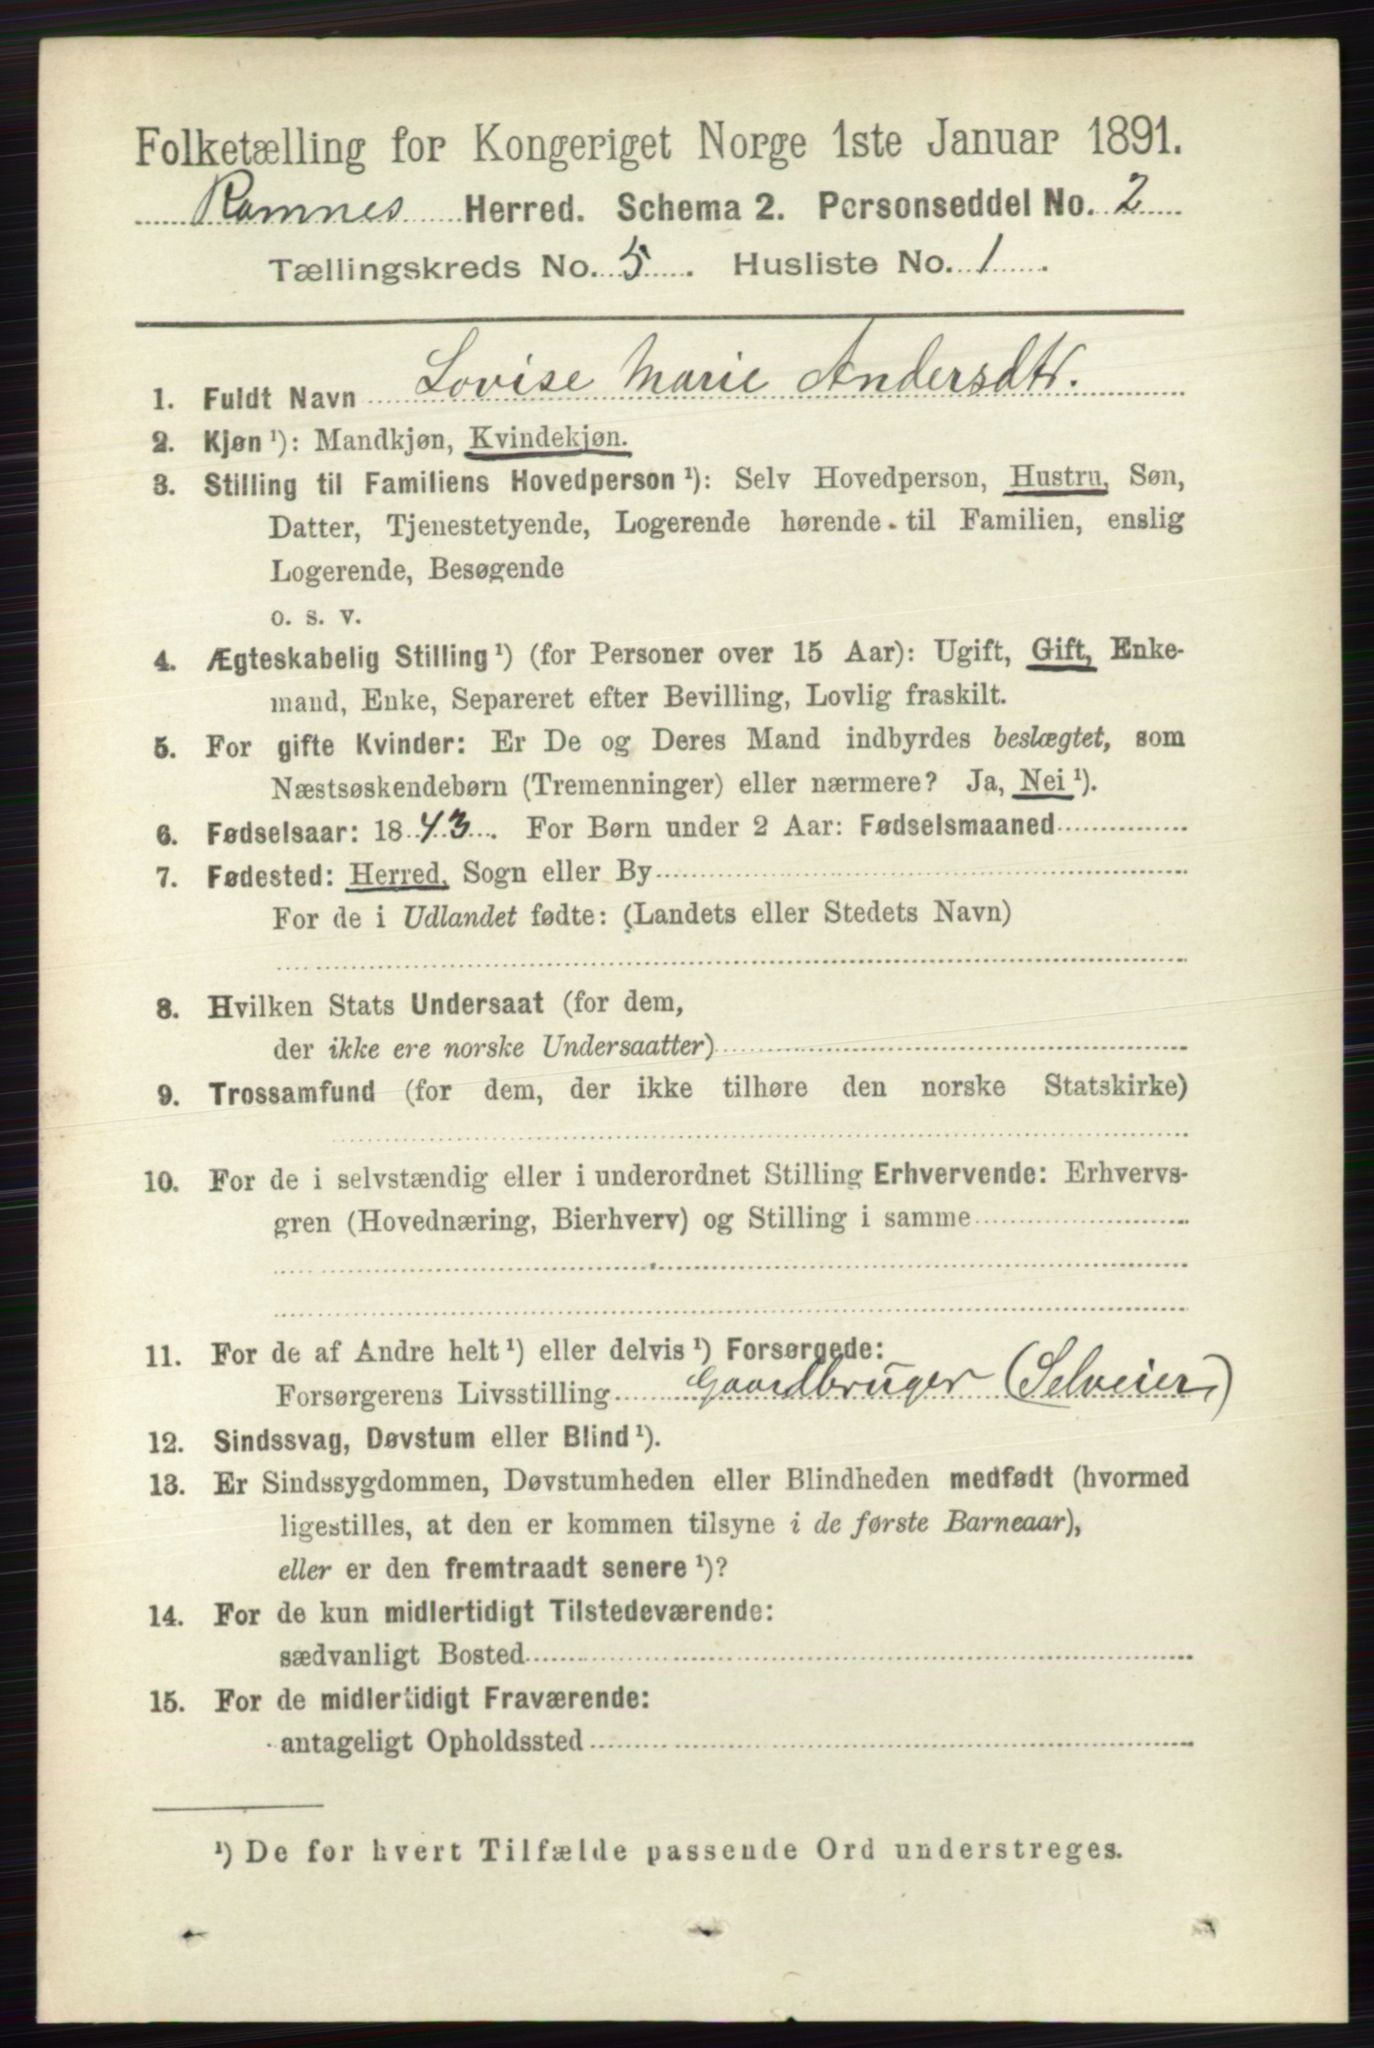 Folketælling for Kongeriget Norge 1ste Januar 1891.
Ramnes Herred. Schema 2. Personseddel No. 2
Tællingskreds No. 5. Husliste No. 1.
1. Fuldt Navn Lovise Marie Andersdtr.
2. Kjøn ¹): Mandkjøn, Kvindekjøn.
3. Stilling til Familiens Hovedperson ¹): Selv Hovedperson, Hustru, Søn,
Datter, Tjenestetyende, Logerende hørende til Familien, enslig
Logerende, Besøgende
o. s. v.
4. Ægteskabelig Stilling ¹) (for Personer over 15 Aar): Ugift, Gift, Enke-
mand, Enke, Separeret efter Bevilling, Lovlig fraskilt.
5. For gifte Kvinder: Er De og Deres Mand indbyrdes beslægtet, som
Næstsøskendebørn (Tremenninger) eller nærmere? Ja, Nei ¹).
6. Fødselsaar: 1843. For Børn under 2 Aar: Fødselsmaaned
7. Fødested: Herred, Sogn eller By
For de i Udlandet fødte: (Landets eller Stedets Navn)
8. Hvilken Stats Undersaat (for dem,
der ikke ere norske Undersaatter)
9. Trossamfund (for dem, der ikke tilhøre den norske Statskirke)
10. For de i selvstændig eller i underordnet Stilling Erhvervende: Erhvervs-
gren (Hovednæring, Bierhverv) og Stilling i samme
11. For de af Andre helt ¹) eller delvis ¹) Forsørgede:
Forsørgerens Livsstilling Gaardbruger (Selveier)
12. Sindssvag, Døvstum eller Blind ¹).
13. Er Sindssygdommen, Døvstumheden eller Blindheden medfødt (hvormed
ligestilles, at den er kommen tilsyne i de første Barneaar),
eller er den fremtraadt senere ¹)?
14. For de kun midlertidigt Tilstedeværende:
sædvanligt Bosted
15. For de midlertidigt Fraværende:
antageligt Opholdssted
¹) De for hvert Tilfælde passende Ord understreges.